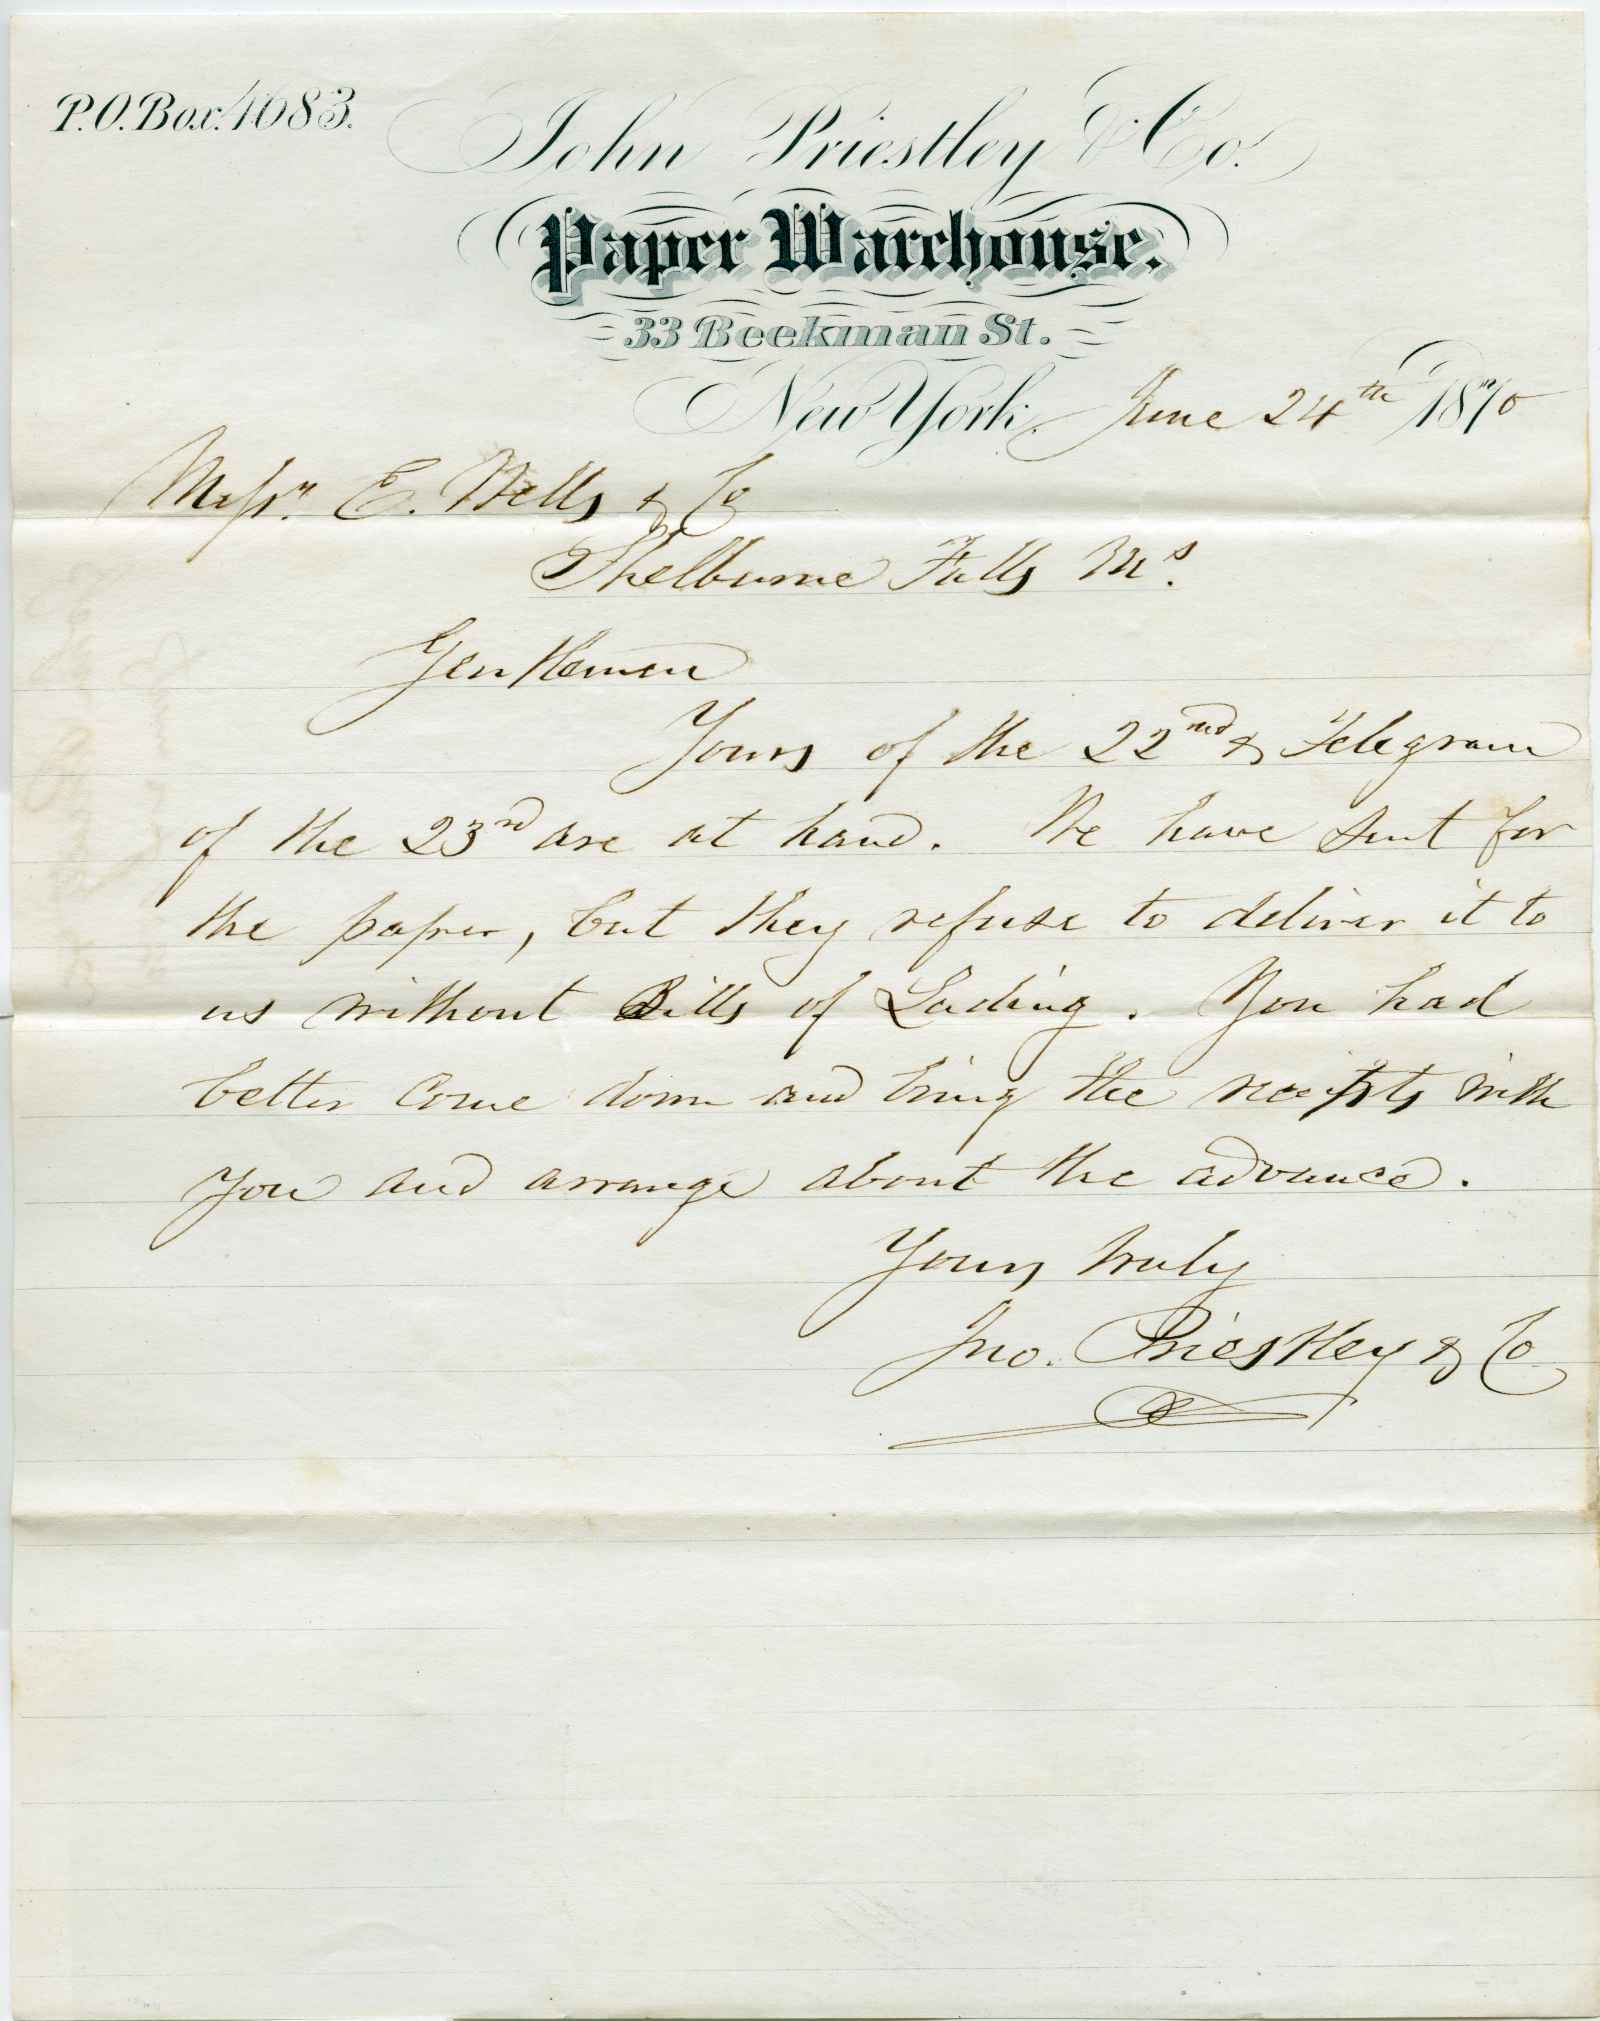 P.O. Box. 4083.
John Priestley & Co.
Paper Warehouse.
33 Beekman St.
New York, June 24th 1870
Messrs. E. Wells & Co
Shelburne Falls Ms.
Gentlemen
Yours of the 22nd & Telegram
of the 23rd are at hand. We have sent for
the paper, but they refuse to deliver it to
us without Bills of Lading. You had
better come down and bring the receipts with
you and arrange about the advance.
Yours truly
Jno. Priestley & Co